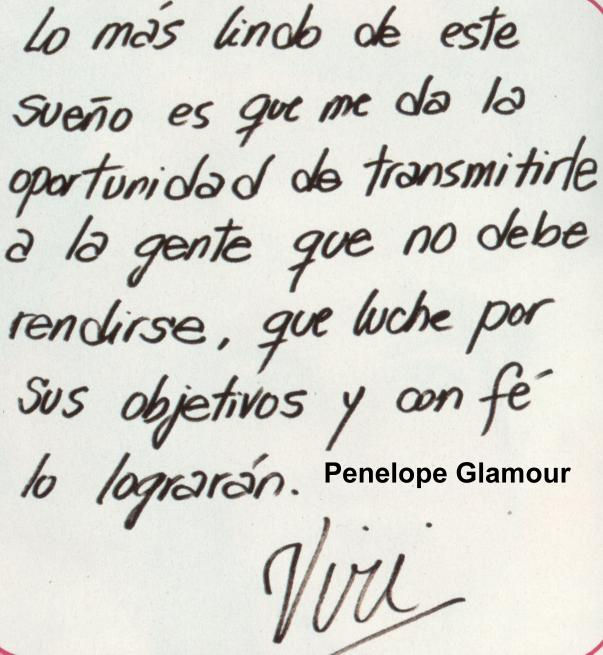 Lo más lindo de este
sueño es que me da la
oportunidad de transmitirle
a la gente que no debe
rendirse, que luche por
sus objetivos y con fé
lo lograrán. Penelope Glamour
Viri